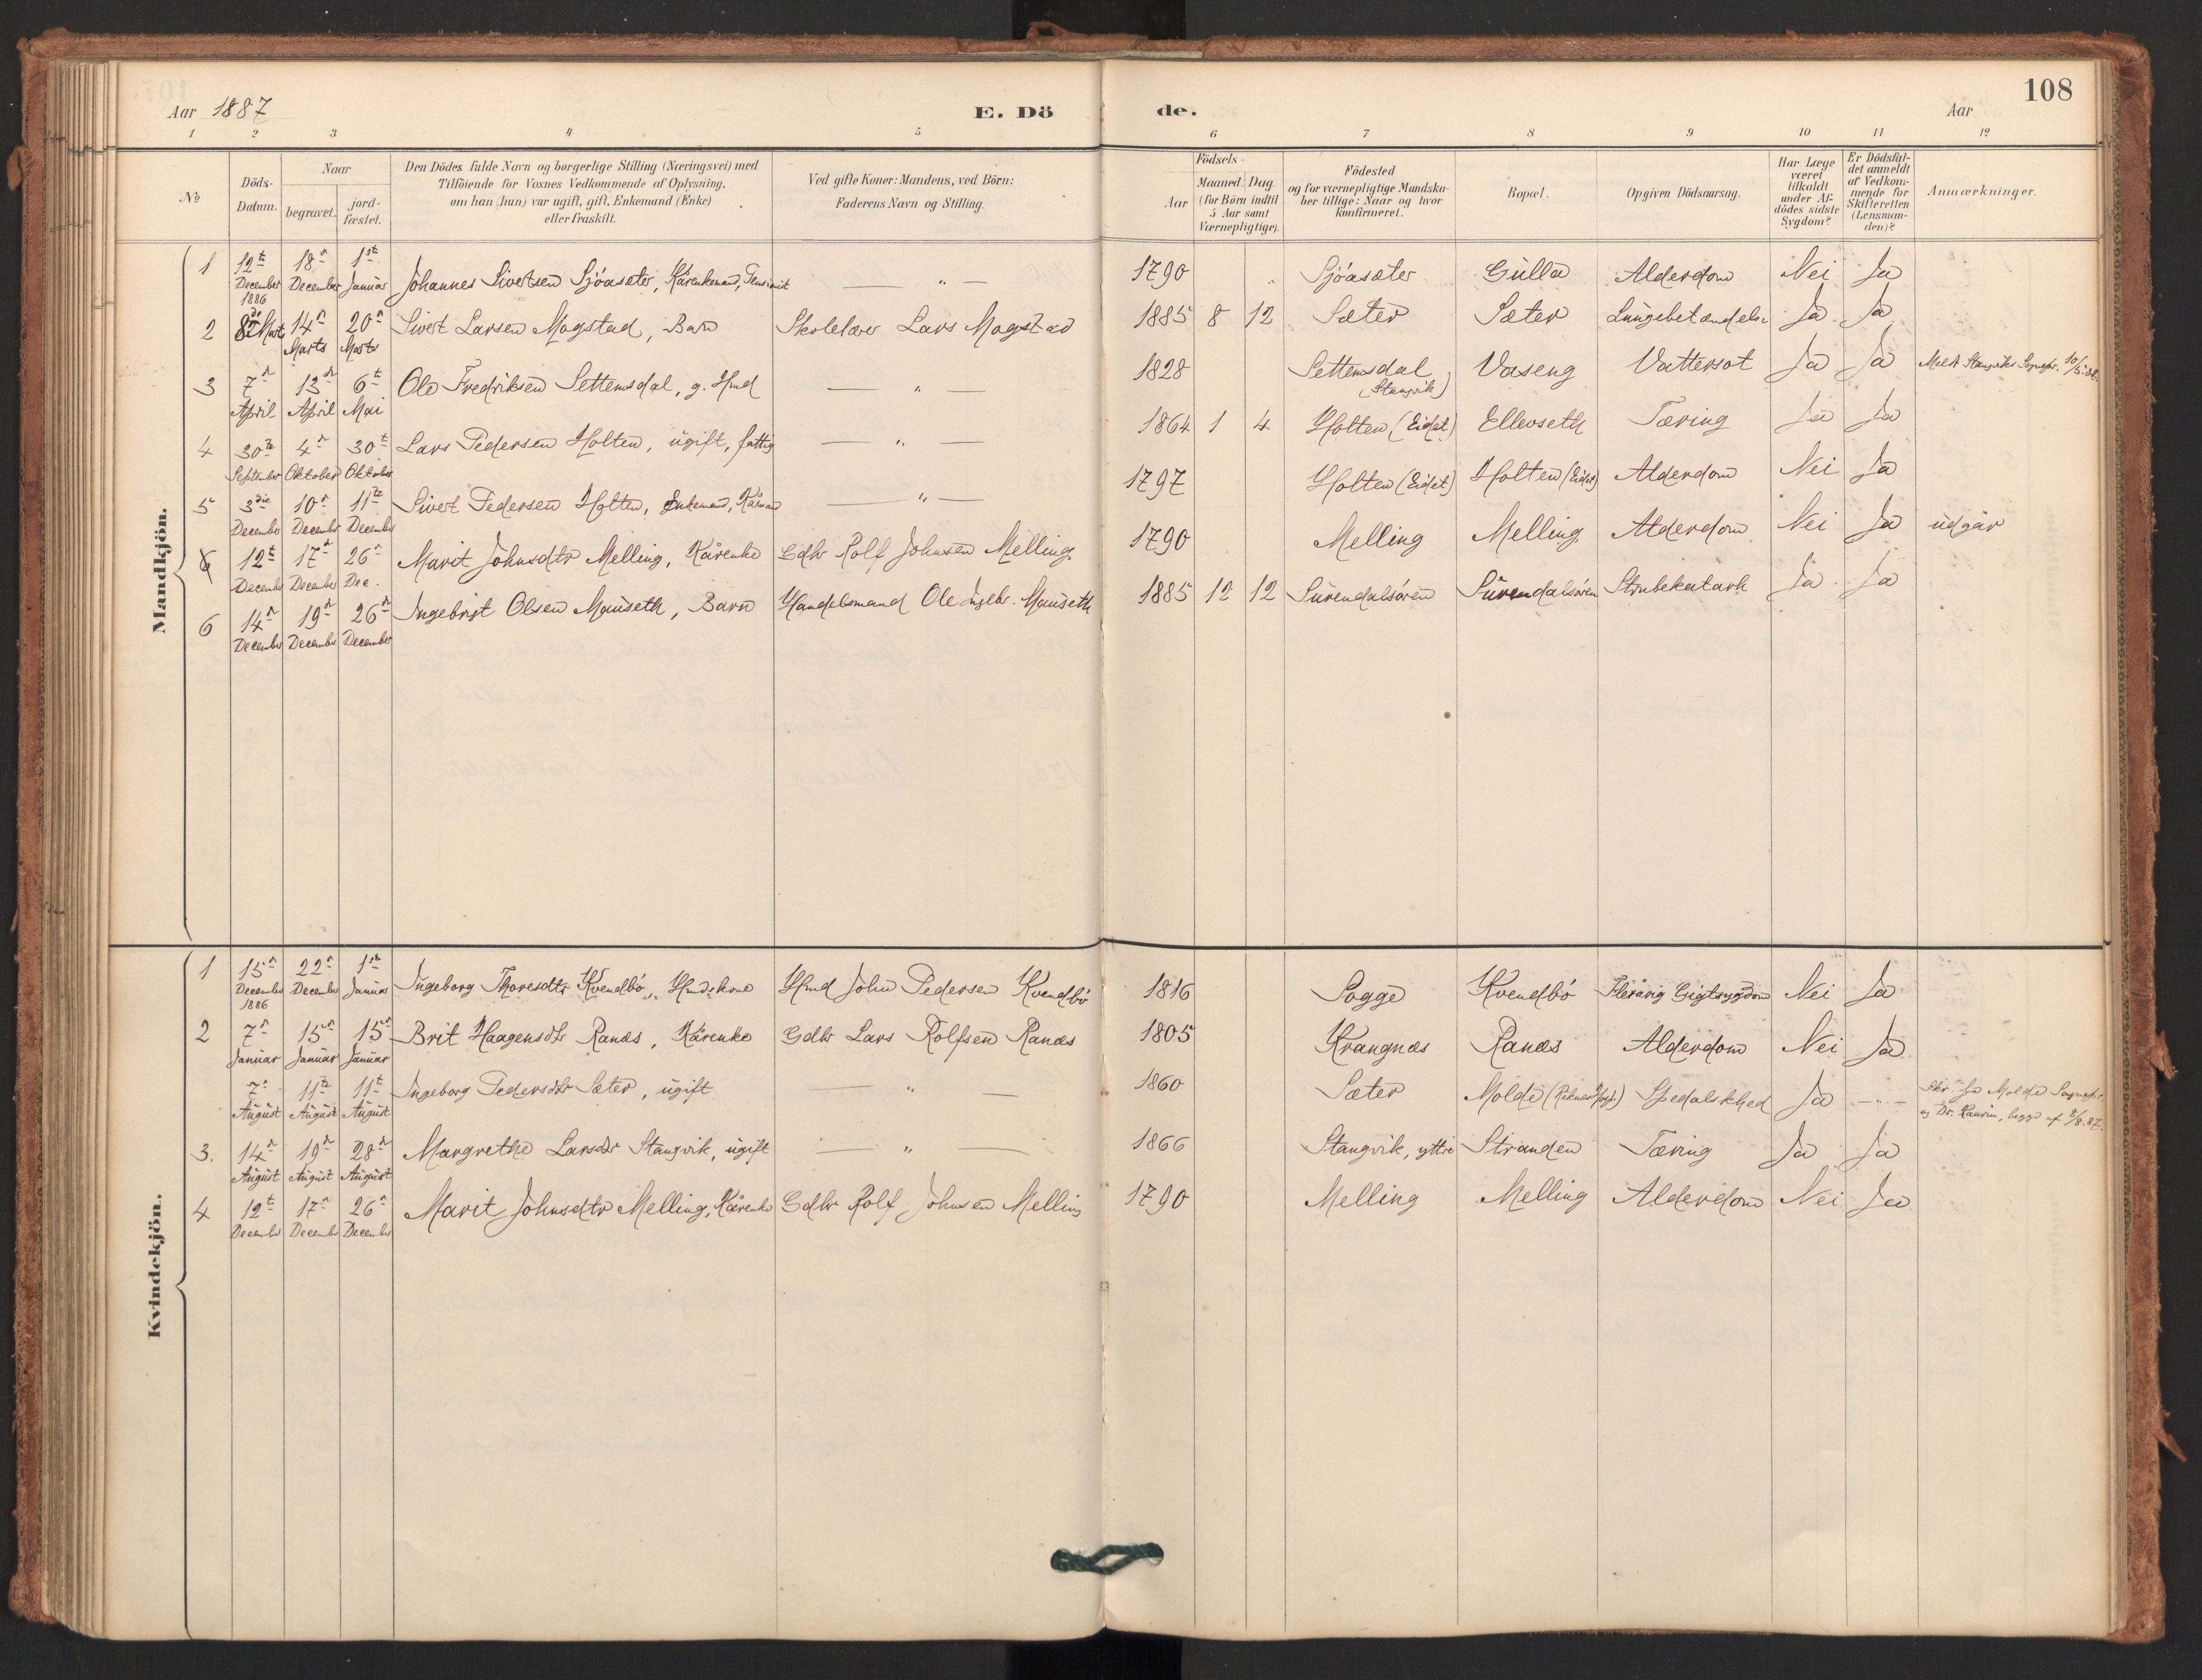 108
Aar 1887 E. Dö de. Aar
1 2 3 4 5 6 7 8 9 10 11 12
№
Döds-
Datum.
Naar
begravet. jord-
fæstet.
Den Dödes fulde Navn og borgerlige Stilling (Næringsvei) med
Tilföiende for Voxnes Vedkommende af Oplysning,
om han (hun) var ugift, gift, Enkemand (Enke)
eller fraskilt.
Ved gifte Koner: Mandens, ved Börn:
Faderens Navn og Stilling.
Födsels-
Aar Maaned. Dag.
(for Börn indtil
5 Aar samt
Værnepligtige).
Födested
og for værnepligtige Mandska-
ber tillige: Naar og hvor
konfirmeret.
Bopæl.
Opgiven Dödsaarsag.
Har Læge
været
tilkaldt
under Af-
dödes sidste
Sygdom?
Er Dödsfal-
det anmeldt
af Vedkom-
mende for
Skifteretten
(Lensman-
den)?
Anmærkninger.
Mandkjön.
1 12te December 1886 18n December 1ste Januar Johannes Sivertsen Sjöasæter, Kårenkemand, — " — 1790 Sjöasæter Gulla Alderdom Nei Ja
2 8de Mart 14n Marts 20n Marts Sivert Larsen Magstad, Barn Skolelærer Lars Magstad 1885 8 12 Sæter Sæter Lungebetændelse Ja Ja
3 7n April 13n April 6te Mai Ole Fredriksen Settemsdal, g. Hmd — " — 1828 Settemsdal (Stangvik) Vaseng Vattersot Ja Ja Meldt Stangviks Sognepr. 10/5.87
4 30te September 4n Oktober 30te Oktober Lars Pedersen Holten, ugift, fattig — " — 1864 1 4 Holten (Eidet) Ellevseth Tæring Ja Ja
5 3die December 10n December 11te December Sivert Pedersen Holten, Enkemand, Kårmand — " — 1797 Holten (Eidet) Holten (Eidet) Alderdom Nei Ja
6 12te December 17n December 26n Dec. Marit Johnsdtr Melling, Kårenke Gdbr Rolf Johnsen Melling 1790 Melling Melling Alderdom Nei Ja udgår
6 14n December 19n December 26n December Ingebrigt Olsen Mauseth, Barn Handelsmand Ole Ingebr. Mauseth 1885 12 12 Surendalsören Surendalsören Strubekatarh Ja Ja
Kvindekjön.
1 15n December 1886 22n December 1ste Januar Ingeborg Thoresdtr Kvendbö, Hmdskone Hmd John Pedersen Kvendbö 1816 Sogge Kvendbö Flerårig Gigtsygdom Nei Ja
2 7n Januar 15n Januar 15n Januar Brit Haagensdtr Ranæs, Kårenke Gdbr Lars Rolfsen Ranæs 1805 Krangnæs Ranæs Alderdom Nei Ja
7n August 11te August 11te August Ingeborg Pedersdtr Sæter, ugift — " — 1860 Sæter Molde (Reknes Hosp.) Spedalskhed Ja — " — Skr. fra Molde Sognepr.
og Dr. Kaurin, begge af 9/8.87.
3. 14n August 19n August 28n August Margrethe Larsdtr Stangvik, ugift — " — 1866 Stangvik, yttre Stranden Tæring Ja Ja
4 12te December 17n December 26n December Marit Johnsdtr Melling, Kårenke Gdbr Rolf Johnsen Melling 1790 Melling Melling Alderdom Nei Ja